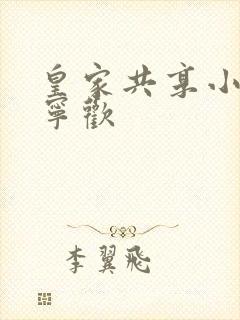 皇家共享小
寧歡
李翼飛